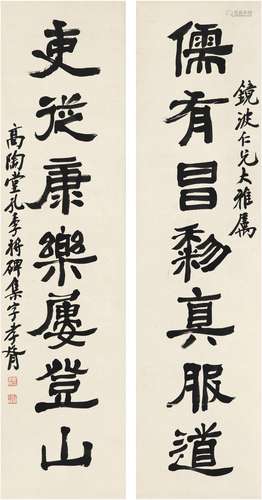 鏡波仁兄大雅屬
儒有昌黎真服道
吏從康樂屢登山
高陶堂孔季將碑集字孝胥